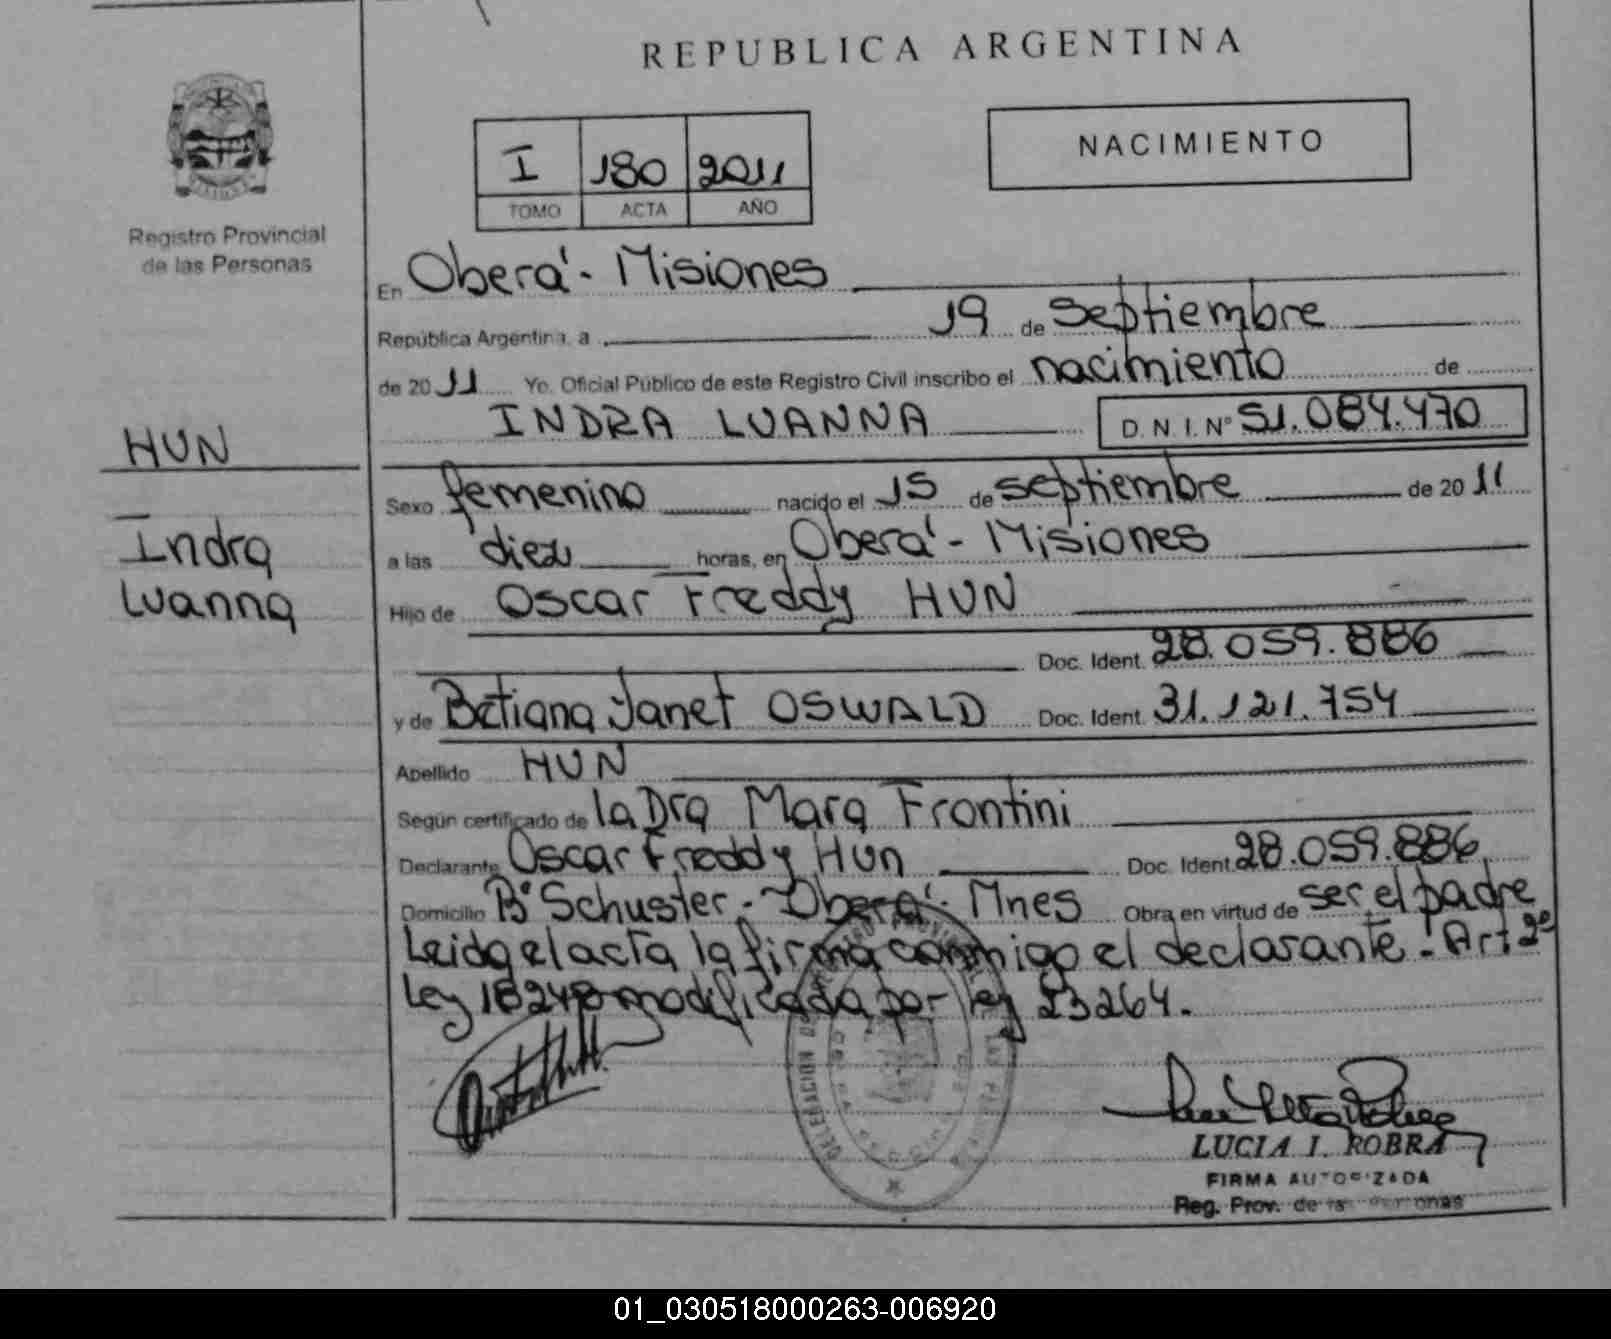 REPUBLICA ARGENTINA
I 180 2011
TOMO ACTA AÑO
NACIMIENTO
Registro Provincial
de las Personas
En Oberá - Misiones
República Argentina, a 19 de Septiembre
de 2011 Yo, Oficial Público de este Registro Civil inscribo el nacimiento de
INDRA LUANNA D.N.I. Nº 51.084.470
HUN
Indra
Luanna
Sexo femenino nacido el 15 de septiembre de 2011
a las diez horas, en Oberá - Misiones
Hijo de Oscar Freddy HUN
Doc. Ident. 28.059.886
y de Betiana Janet OSWALD Doc. Ident. 31.121.754
Apellido HUN
Según certificado de la Dra Mara Frontini
Declarante Oscar Freddy Hun Doc. Ident. 28.059.886
Domicilio Bº Schuster - Oberá - Mnes Obra en virtud de ser el padre
Leida el acta la firma conmigo el declarante. Art 2º
Ley 18248 modificada por ley 23264.
LUCIA I. ROBRA
FIRMA AUTORIZADA
Reg. Prov. de las Personas
01_030518000263-006920